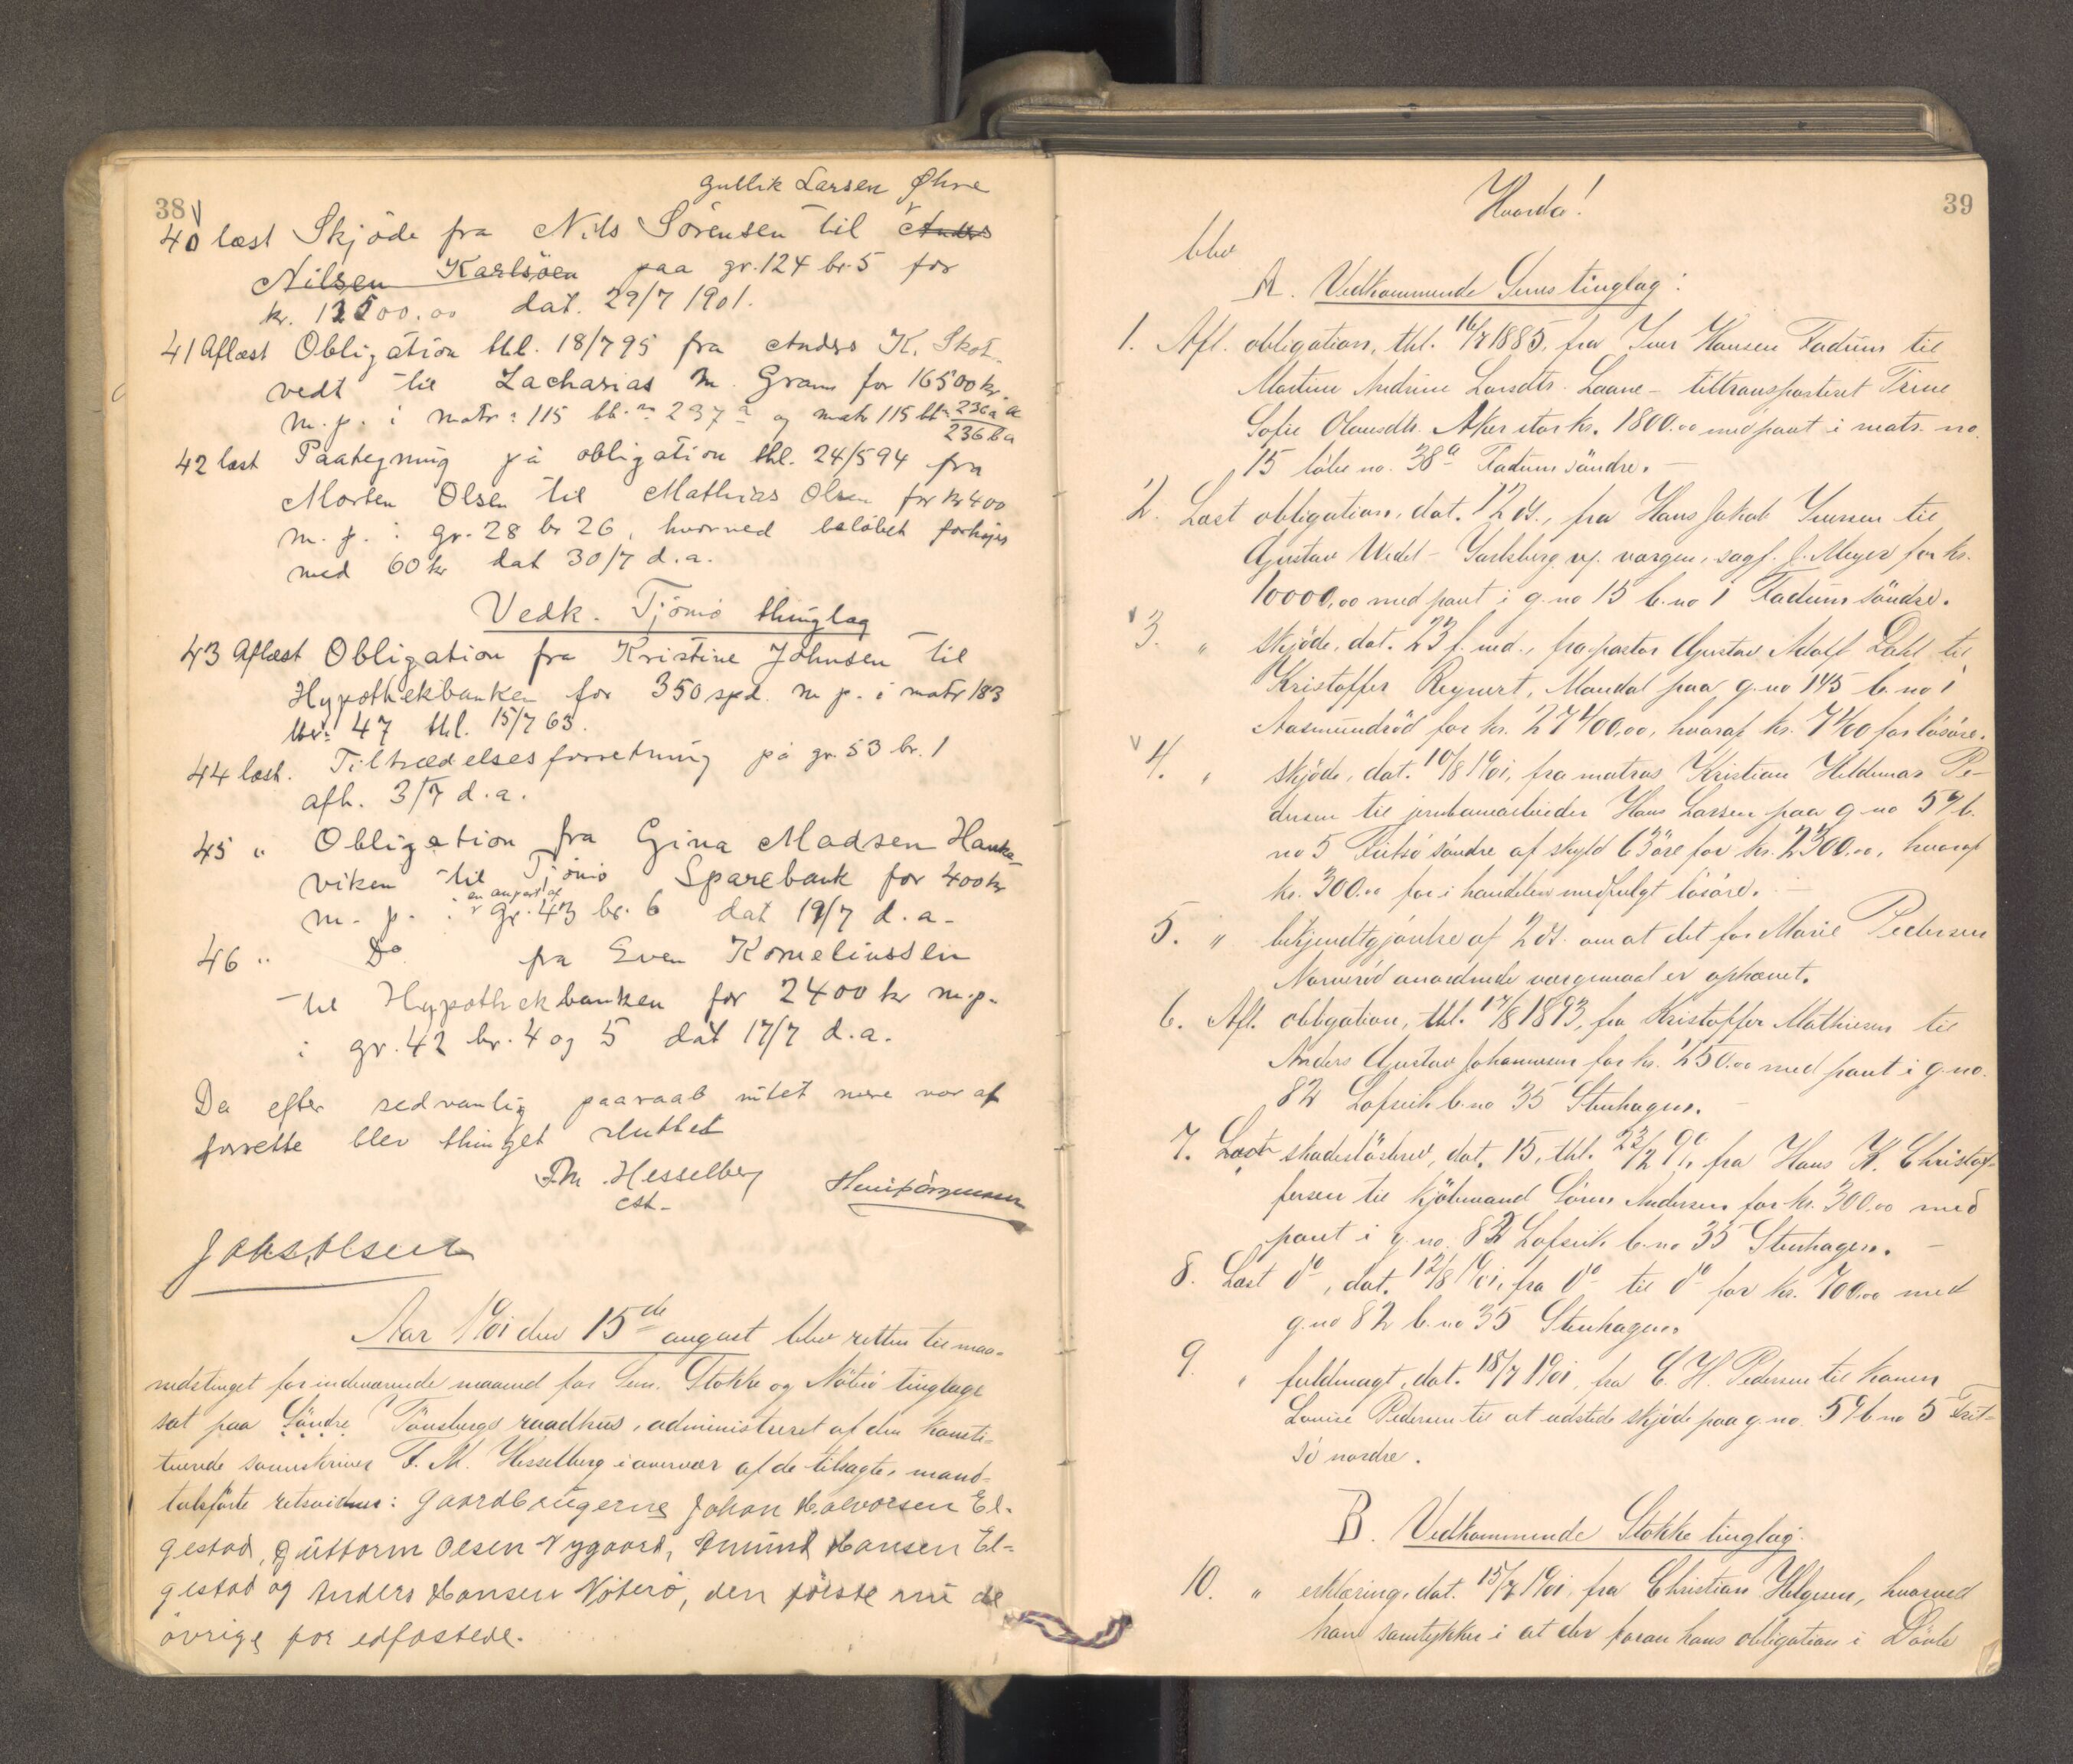 38
Gullik Larsen Øhre
40 læst Skjøde fra Nils Sörensen til Anders
Nilsen Karlsöen paa gr. 124 br. 5 for
kr. 12500.00 dat. 29/7 1901.
41 Aflæst Obligation thl. 18/7 95 fra Anders K. Skot-
vedt til Zacharias M. Gram for 16500 kr.
m. p. i matr: 115 og matr 115
236 b a
42 læst Paategning på obligation thl. 24/5 94 fra
Morten Olsen til Mathias Olsen for kr 400
m. p. i gr. 28 br 26, hvorved beløbet forhøjes
med 60 kr dat 30/7 d.a.
Vedk. Tjömö thinglag
43 Aflæst Obligation fra Kristine Johnsen til
Hypothekbanken for 350 spd. m p. i matr 183
lbr: 47 thl. 15/7 63.
44 læst. Tiltrædelsesforretning på gr. 53 br. 1
afh. 3/7 d.a.
45 " Obligation fra Gina Madsen Hanka-
viken til Tjömö Sparebank for 400 kr
en anpart af
m. p. i gr. 43 br. 6 dat 19/7 d.a.
46 " Do fra Even Korneliussen
til Hypothekbanken for 2400 kr m.p.
i gr. 42 br. 4 og 5 dat 17/7 d.a.
Da efter sedvanlig paaraab intet mere var at
forrette blev thinget sluttet
Fm. Hesselberg
cst.
Aar 1901 den 15de august blev retten til maa-
nedstinget for indeværende maaned for Sem, Stokke og Nøterö tinglage
sat paa Søndre Tønsbergs raadhus, administreret af den konsti-
tuerede sorenskriver F. M. Hesselberg i overvær af de tilsagte, mand-
talsførte retsvidner: Gaardbrugerne Johan Halvorsen El-
gestad, Guttorm Olsen Nygaard, Amund Hansen El-
gestad og Anders Hansen Nöterö, den förste nu de
övrige før edfæstede.
39
Hvorda!
blev
A. Vedkommende Sems tinglag:
1. Afl. obligation, thl. 16/7 1885, fra Iver Hansen Fadum til
Martine Andrine Larsdtr. Laane - tiltransporteret Trine
Sofie Olausdtr. Aker stor kr. 1800.00 med pant i matr. no.
15 løbe no. 38a Fadum søndre.
2. Læst obligation, dat. 12 ds., fra Hans Jakob Iversen til
Gustav Wedel-Jarlsberg v. vargen, sagf. J. Meyer for kr.
10000,00 med pant i g. no 15 b. no 1 Fadum søndre.
3. " skjøde, dat. 23 f. md., fra pastor Gustav Adolf Dahl til
Kristoffer Regnert, Mandal paa g. no 145 b. no 1
Aasmundrød for kr. 27400,00, hvoraf kr. 7400 for løsøre.
4. " skjøde, dat. 10/8 1901, fra matros Kristian Heldemar Pe-
dersen til jernbanearbeider Hans Larsen paa g. no 59 b.
no 5 søndre af skyld 63 øre for kr. 2300.00, hvoraf
kr. 300.00 for i handelen medfulgt løsøre.
5. " bekjendtgjørelse af 2 ds. om at det for Marie Pedersen
Narverød anordnede værgemaal er ophævet.
6. Afl. obligation, thl. 17/8 1893, fra Kristoffer Mathisen til
Anders Gustav Johannesen for kr. 250.00 med pant i g. no.
82 Lofserik b. no 35 Stenhagen.
7. Læst skadesløsbrev, dat. 15, thl. 23/2 99, fra Hans K. Christof-
fersen til kjøbmand Søren Andersen for kr. 300.00 med
pant i g. no. 82 Lofserik b. no 35 Stenhagen.
8. Læst do, dat. 12/8 1901, fra do til do for kr. 700.00 med
g. no 82 b. no 35 Stenhagen.
9. " fuldmagt, dat. 18/7 1901, fra C. H. Pedersen til konen
Lovise Pedersen til at udstede skjøde paa g. no. 59 b no 5
sö nordre.
B. Vedkommende Stokke tinglag.
10. " erklæring, dat. 15/7 1901, fra Christian Helgesen, hvorved
han samtykker i at der foran hans obligation i